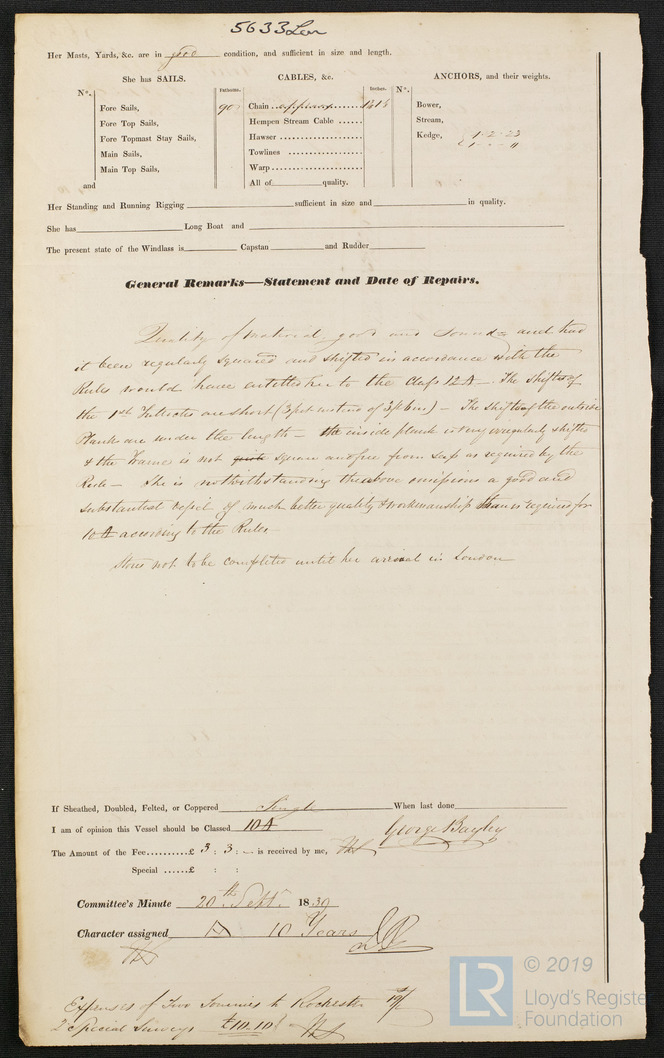 5633 Lon
Her Masts, Yards, &c. are in good condition, and sufficient in size and length.
She has SAILS.
CABLES, &c.
ANCHORS, and their weights.
N°.
Fathoms.
Inches.
N°.
Fore Sails,
90
Chain
Bower,
Fore Top Sails,
Hempen Stream Cable
Stream,
Fore Topmast Stay Sails,
Hawser
Kedge,
1-2-23
Main Sails,
Towlines
1 - - 11
Main Top Sails,
Warp
and
All of quality.
Her Standing and Running Rigging sufficient in size and in quality.
She has Long Boat and
The present state of the Windlass is Capstan and Rudder
General Remarks—Statement and Date of Repairs.
Quality of material good and Sound and had
it been regularly squared and shifted in accordance with the
Rules would have entitled her to the Class 12A – The Shifts of
the 1st Futtocks are short (3 feet instead of 3ft 6in) – The shifts of the outside
Plank are under the length – the inside plank is very irregularly shifted
& the Frame is not quite square and free from sap as required by the
Rule – She is notwithstanding the above omissions a good and
substantial vessel of much better quality & workmanship than is required for
10 A according to the Rules
Stores not to be completed until her arrival in London
If Sheathed, Doubled, Felted, or Coppered Single When last done
I am of opinion this Vessel should be Classed 10A
George Bayley
The Amount of the Fee..........£ 3 : 3 : – is received by me,
Special ......£ : :
Committee's Minute 20th Septr 1839
Character assigned A 10 Years
Expenses of Two Journies to Rochester 19/
2 Special Surveys £10.10
© 2019
LR
Lloyd's Register
Foundation